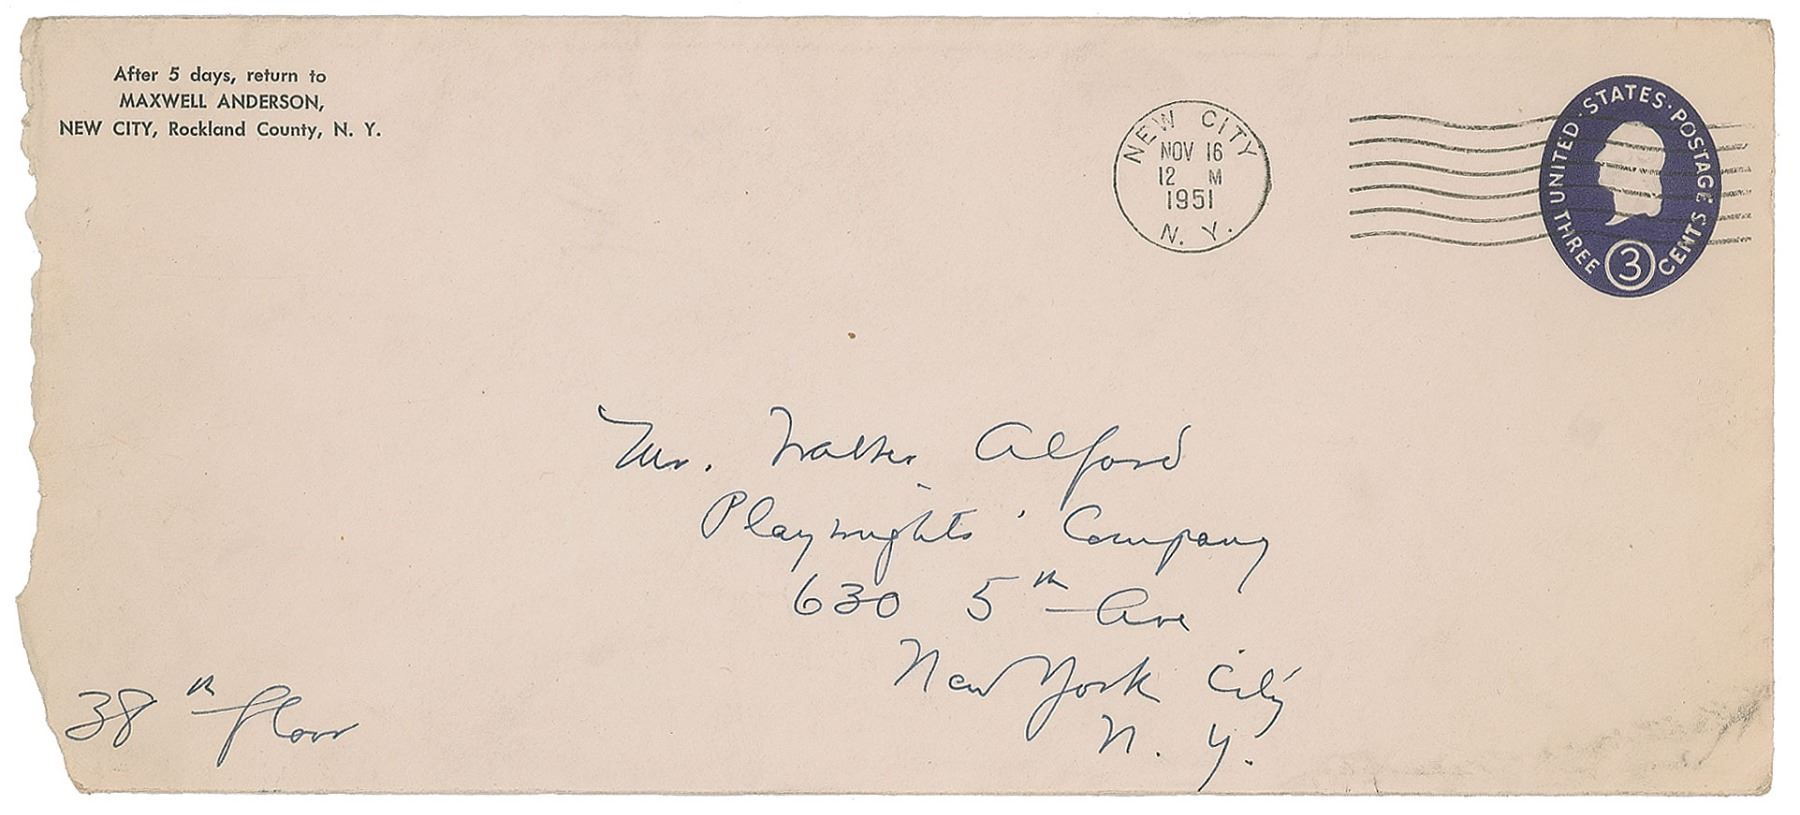 After 5 days, return to
MAXWELL ANDERSON,
NEW CITY, Rockland County, N. Y.
NEW CITY
NOV 16
12 M
1951
N. Y.
UNITED · STATES · POSTAGE
THREE 3 CENTS
Mr. Walter Alford
Playwrights' Company
630 5th Ave
New York City
N. Y.
38th floor